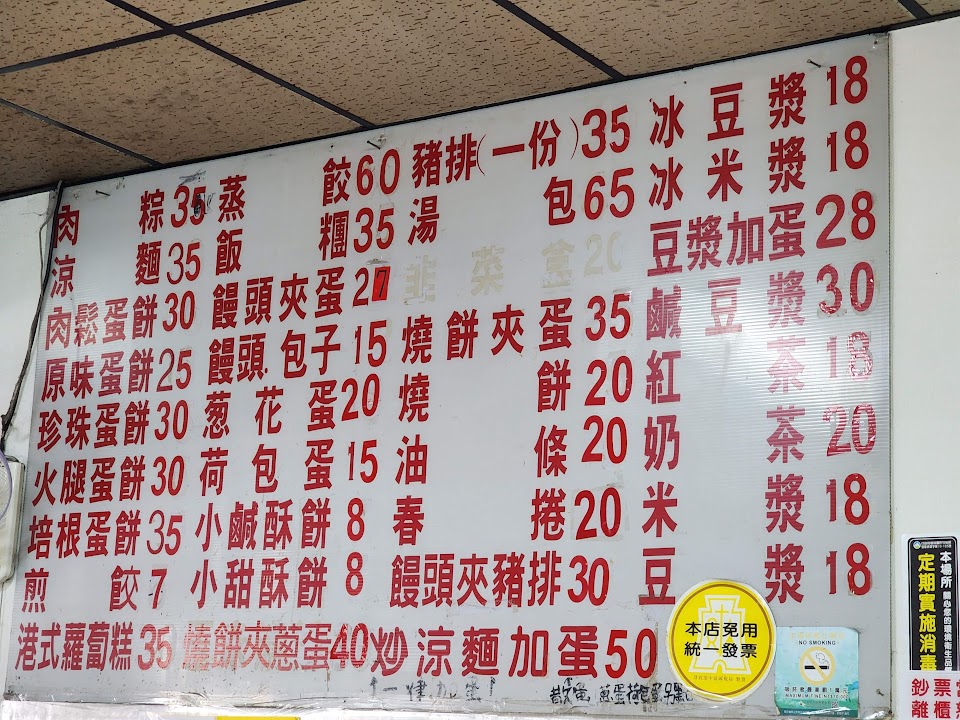 肉粽35
涼麵35
肉鬆蛋餅30
原味蛋餅25
珍珠蛋餅30
火腿蛋餅30
培根蛋餅35
煎餃7
港式蘿蔔糕35
蒸餃60
飯糰35
饅頭夾蛋27
饅頭.包子15
葱花蛋20
荷包蛋15
小鹹酥餅8
小甜酥餅8
燒餅夾蔥蛋40
豬排(一份)35
湯包65
韭菜盒20
燒餅夾蛋35
燒餅20
油條20
春捲20
饅頭夾豬排30
炒涼麵加蛋50
冰豆漿18
冰米漿18
豆漿加蛋28
鹹豆漿30
紅茶18
奶茶20
米漿18
豆漿18
本店免用
統一發票
NO SMOKING
本場所
定期實施消毒
鈔票當
離櫃